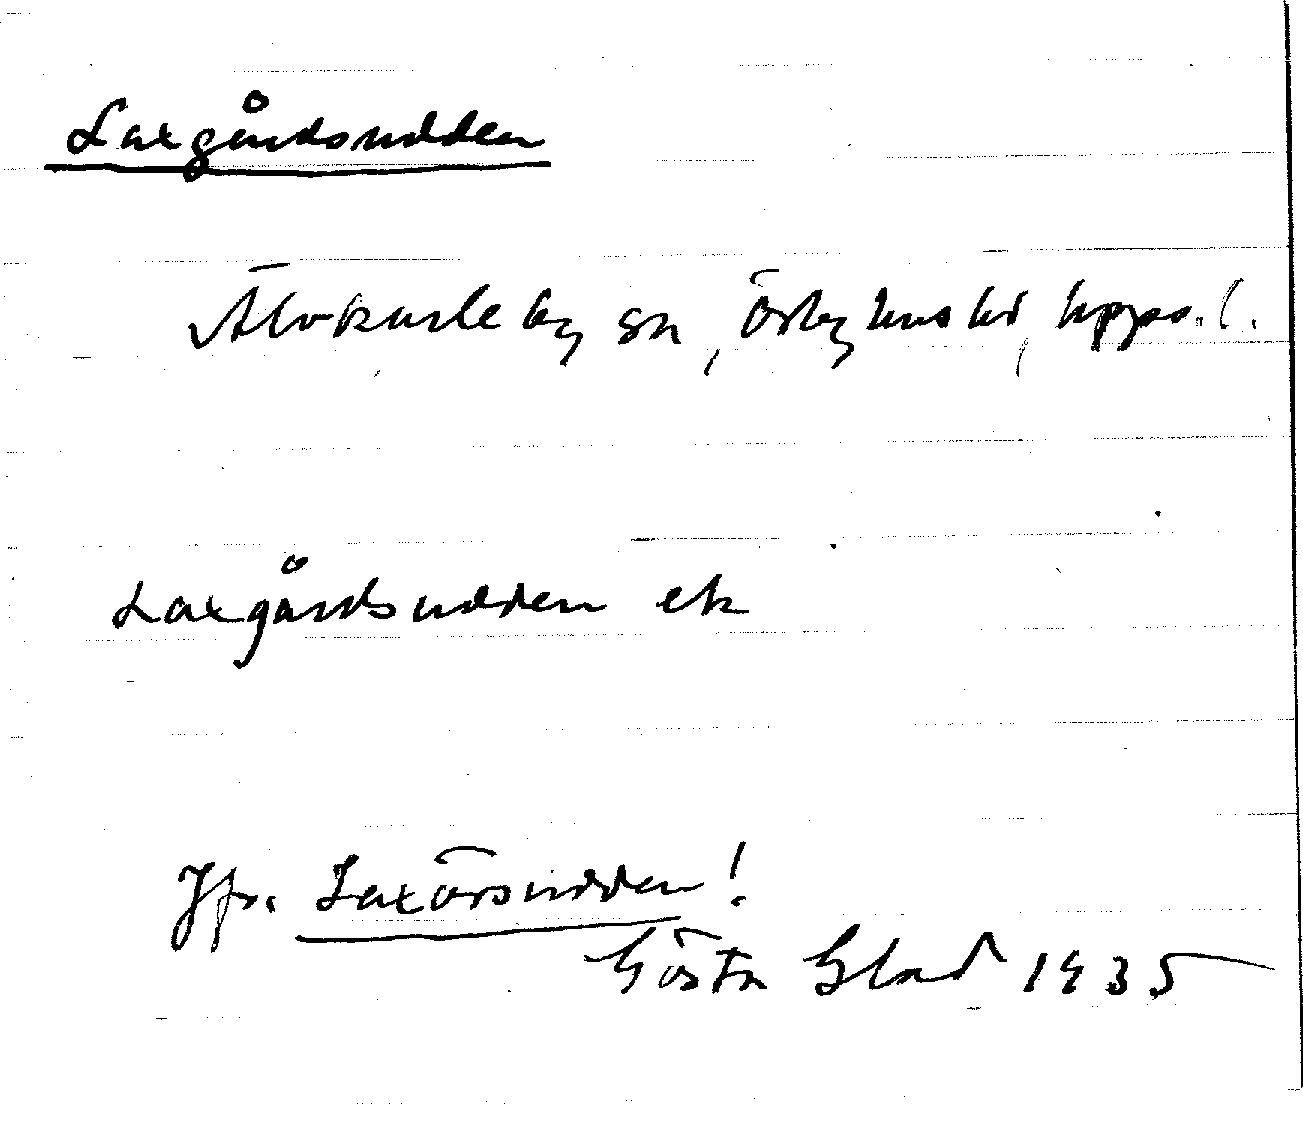 Laxgårdsudden
Älvkarleby sn, Örbyhus hd, Upps. l.
Laxgårdsudden ek
Jfr. Laxörsudden!
Gösta Blad 1935